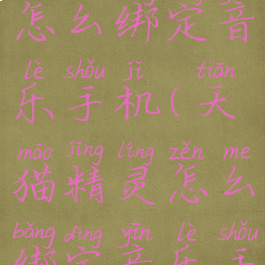 怎么绑定音
lè shǒu jī tiān
乐手机(天
māo jīng líng zěn me
猫精灵怎么
bǎng dìng yīn lè shǒu
绑定音乐手